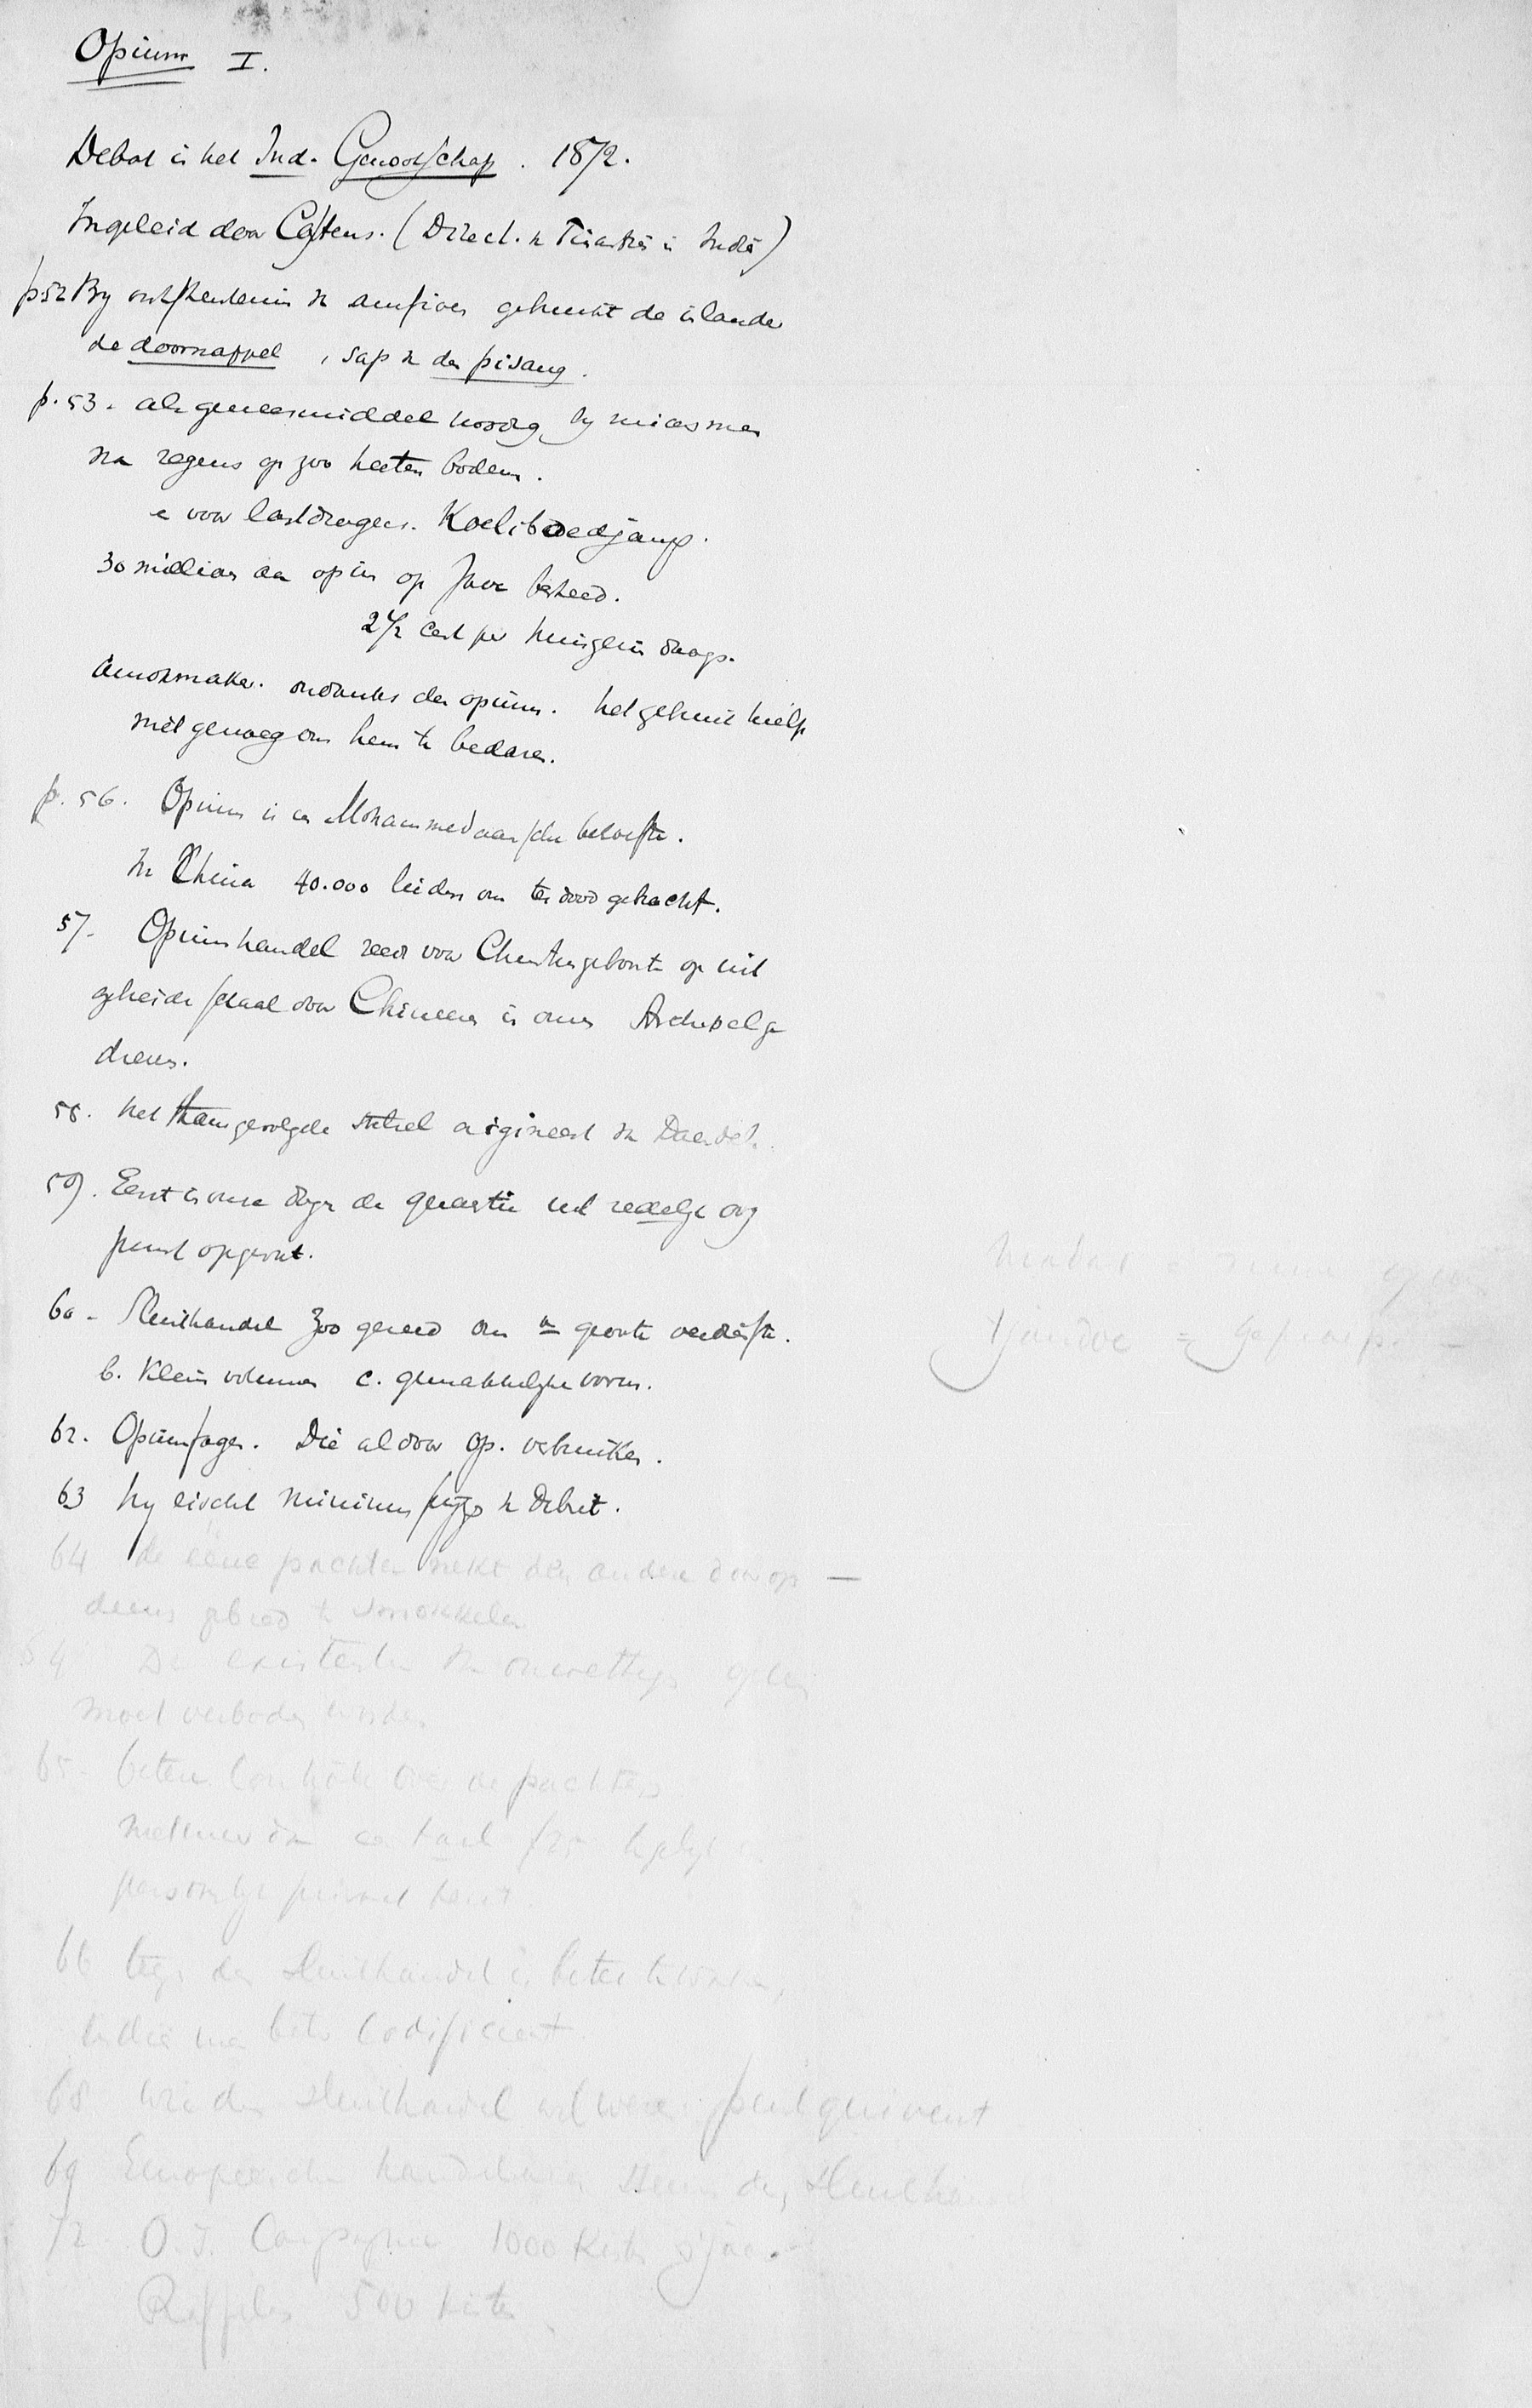 Opium I.
Debat in het Ind. Genootschap. 1872.
Ingeleid door Castens. (Direct. v Financiën in Indië)
p.52 By ontstentenis v amfioen gebruikt de inlander
de doornappel, sap v den pisang.
p.53. als geneesmiddel noodig by miasmen
na regens op zoo heeten bodem.
en voor lastdragers. Koeliboedjang.
30 millioen aan opium op Java besteed.
2 1/2 cent per huisgezin daags.
Amokmaker. ondanks den opium. het gebruik hielp
niet genoeg om hem te bedaren.
p. 56. Opium is een Mohammedaansche behoefte.
In China 40.000 lieden om ter dood gebracht.
57. Opiumhandel reeds voor Christus geboorte op uit
gebreide schaal door Chineezen in onzen Archipel ge
dreven.
58. het thans gevolgde stelsel origineert v Daendels.
59. Eerst in onze dagen de quaestie uit zedelijk oog
punt opgevat.
60. Sluikhandel zoo gereed om a groote verdienste.
b. Klein volumen c. gemakkelijke vorm.
62. Opiumjagers. Die al door op. verbruiken.
63 hy eischt minimum prijs v debiet.
64 de eene pachter nekt den andere door op
diens gebied te smokkelen
64 De existentie van onwettige opium
moet verboden worden
65. betere controle over de pachters
een taël f25
persoonlijk
66 tegen den sluikhandel is beter te waken,
indien men beter codificeert
68 wie den sluikhandel wil weren
69 Europeesche handelaren steunen den sluikhandel
72 O.I. Compagnie 1000 kisten 's jaars
Raffles 500 kisten
madat = ruwe opium
tjandoe =